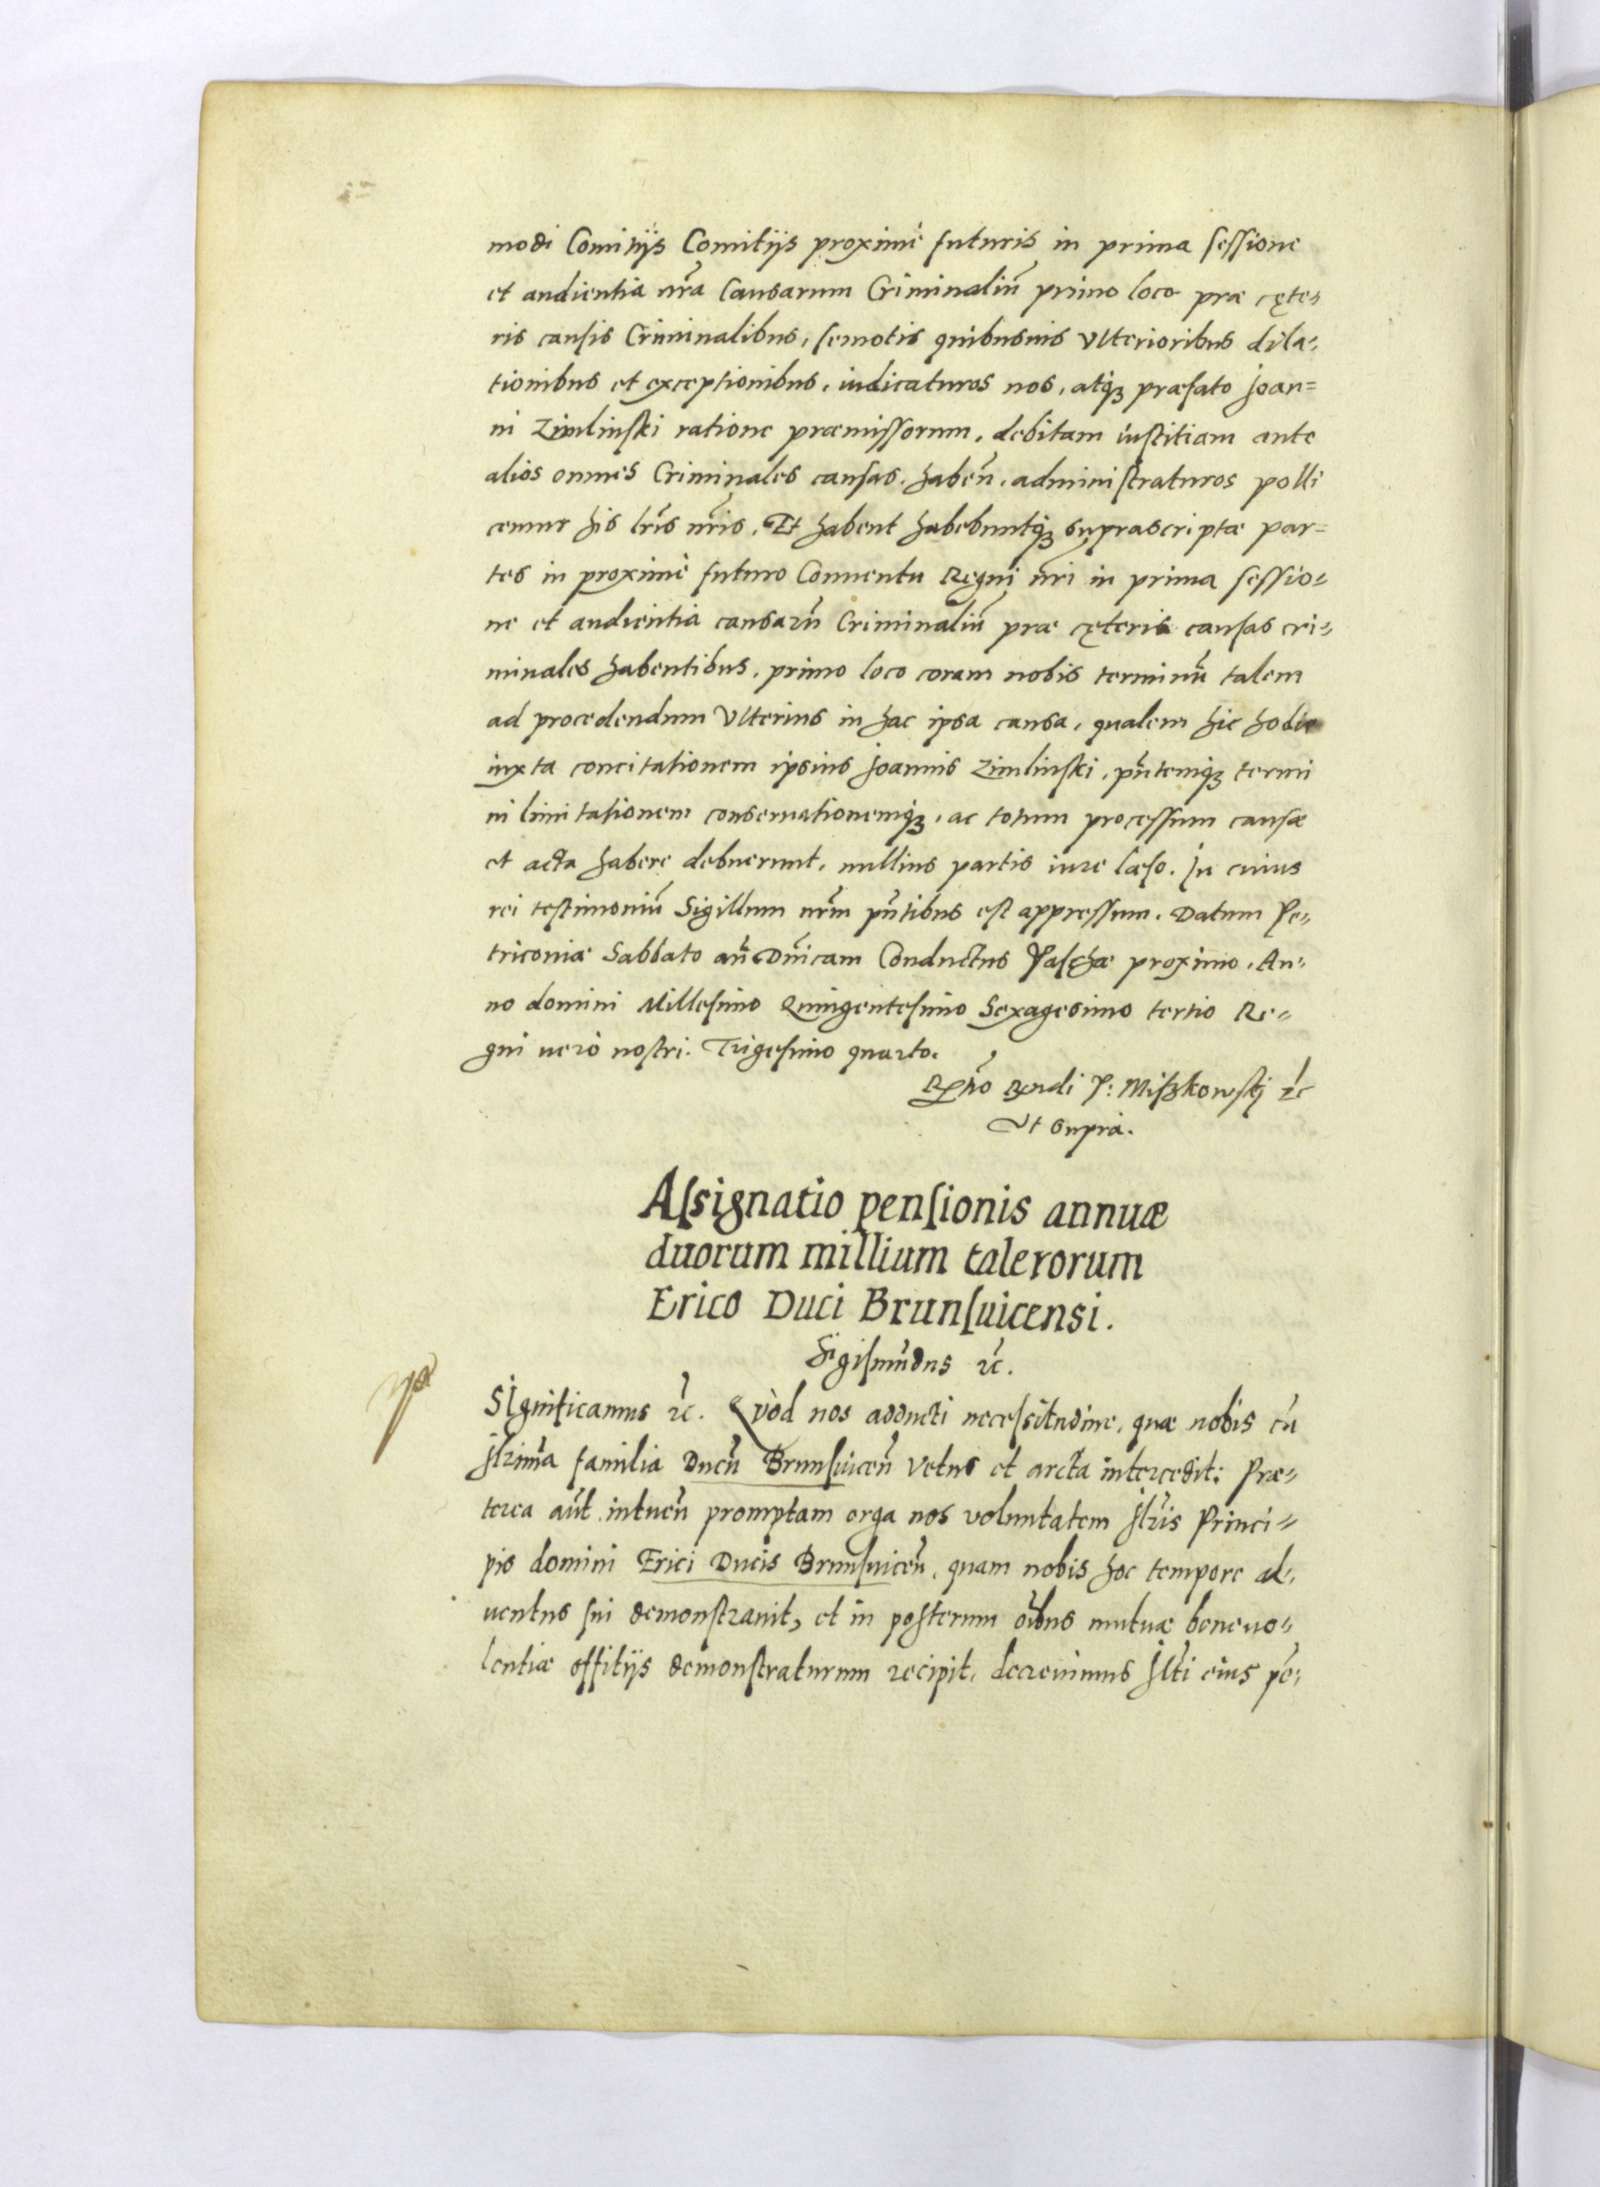 modi Comitijs Comitijs proximè futuris in prima sessione
et audientia nr̃a Causarum Criminaliũ primo loco præ cęte=
ris causis Criminalibus, semotis quibusuis vlterioribus dila=
tionibus et exceptionibus, iudicaturos nos, atqꝫ præfato Joan=
ni Zimlinski ratione præmissorum, debitam iustitiam ante
alios omnes Criminales causas, habeñ, administraturos polli
cemur his lr̃is nr̃is. Et habent habebuntqꝫ suprascriptæ par=
tes in proximè futuro Conuentu Regni nr̃i in prima sessio=
ne et audientia causarũ Criminaliũ præ cęteris causas cri=
minales habentibus, primo loco coram nobis terminũ talem
ad procedendum vlterius in hac ipsa causa, qualem hic hodie
iuxta concitationem ipsius Joannis Zimlinski, pñtemqꝫ termi
ni limitationem conseruationemqꝫ, ac totum processum causæ
et acta habere debuerunt, nullius partis iure læso. In cuius
rei testimoniũ Sigillum nr̃m pñtibus est appressum. Datum Pe=
triconiæ Sabbato añ Dñicam Conductus Paschæ proximo. An=
no domini Millesimo Quingentesimo Sexagesimo tertio Re=
gni uerò nostri. Trigesimo quarto.
Rx̃ño Rx̃ndi P: Miszkowskj ꝛc̃
Vt supra.
Assignatio pensionis annuæ
duorum millium talerorum
Erico Duci Brunsuicensi.
Sigismũdus ꝛc̃.
Significamus ꝛc̃. Quòd nos adducti necessitudine, quæ nobis cũ
Jlr̃ima familia Ducũ Brunsuiceñ vetus et arcta intercedit: Præ=
terea aũt intueñ promptam erga nos voluntatem Jlr̃is Princi=
pis domini Erici Ducis Brunsuiceñ, quam nobis hoc tempore ad=
uentus sui demonstrauit, et in posterum oĩbus mutuæ beneuo=
lentiæ offitijs demonstraturum recipit, decreuimus Jlt̃i eius pẽ=